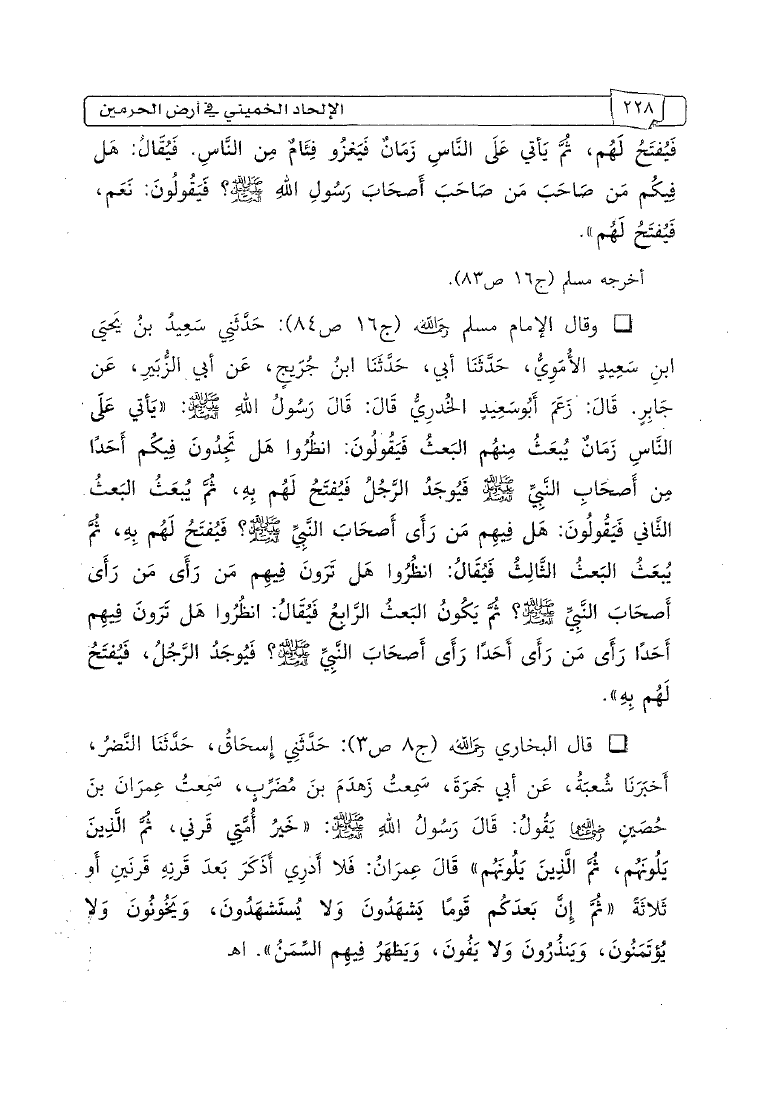 ٢٢٨ الإلحاد الخميني في أرض الحرمين
فَيُفتَحُ لَهُم، ثُمَّ يَأتي عَلَى النَّاسِ زَمَانٌ فَيَغزُو فِئَامٌ مِن النَّاسِ. فَيُقَالُ: هَل
فِيكُم مَن صَاحَبَ مَن صَاحَبَ أَصحَابَ رَسُولِ اللهِ ﷺ؟ فَيَقُولُونَ: نَعَم،
فَيُفتَحُ لَهُم».
أخرجه مسلم (ج١٦ ص٨٣).
❏ وقال الإمام مسلم رحمه الله (ج١٦ ص٨٤): حَدَّثَنِي سَعِيدُ بنُ يَحيَى
ابنِ سَعِيدٍ الأُمَوِيُّ، حَدَّثَنَا أبي، حَدَّثَنَا ابنُ جُرَيجٍ، عَن أبي الزُّبَيرِ، عَن
جَابِرٍ. قَالَ: زَعَمَ أَبُوسَعِيدٍ الخُدرِيُّ قَالَ: قَالَ رَسُولُ اللهِ ﷺ: «يَأتي عَلَى
النَّاسِ زَمَانٌ يُبعَثُ مِنهُم البَعثُ فَيَقُولُونَ: انظُرُوا هَل تَجِدُونَ فِيكُم أَحَدًا
مِن أَصحَابِ النَّبِيِّ ﷺ فَيُوجَدُ الرَّجُلُ فَيُفتَحُ لَهُم بِهِ، ثُمَّ يُبعَثُ البَعثُ
الثَّاني فَيَقُولُونَ: هَل فِيهِم مَن رَأَى أَصحَابَ النَّبِيِّ ﷺ؟ فَيُفتَحُ لَهُم بِهِ، ثُمَّ
يُبعَثُ البَعثُ الثَّالِثُ فَيُقَالُ: انظُرُوا هَل تَرَونَ فِيهِم مَن رَأَى مَن رَأَى
أَصحَابَ النَّبِيِّ ﷺ؟ ثُمَّ يَكُونُ البَعثُ الرَّابِعُ فَيُقَالُ: انظُرُوا هَل تَرَونَ فِيهِم
أَحَدًا رَأَى مَن رَأَى أَحَدًا رَأَى أَصحَابَ النَّبِيِّ ﷺ؟ فَيُوجَدُ الرَّجُلُ، فَيُفتَحُ
لَهُم بِهِ».
❏ قال البخاري رحمه الله (ج٨ ص٣): حَدَّثَنِي إِسحَاقُ، حَدَّثَنَا النَّضرُ،
أَخبَرَنَا شُعبَةُ، عَن أبي جَمرَةَ، سَمِعتُ زَهدَمَ بنَ مُضَرِّبٍ، سَمِعتُ عِمرَانَ بنَ
حُصَينٍ رضي الله عنهما يَقُولُ: قَالَ رَسُولُ اللهِ ﷺ: «خَيرُ أُمَّتِي قَرنِي، ثُمَّ الَّذِينَ
يَلُونَهُم، ثُمَّ الَّذِينَ يَلُونَهُم» قَالَ عِمرَانُ: فَلا أَدرِي أَذَكَرَ بَعدَ قَرنِهِ قَرنَينِ أَو
ثَلاثَةً «ثُمَّ إِنَّ بَعدَكُم قَومًا يَشهَدُونَ وَلا يُستَشهَدُونَ، وَيَخُونُونَ وَلا
يُؤتَمَنُونَ، وَيَنذُرُونَ وَلا يَفُونَ، وَيَظهَرُ فِيهِم السِّمَنُ». اهـ